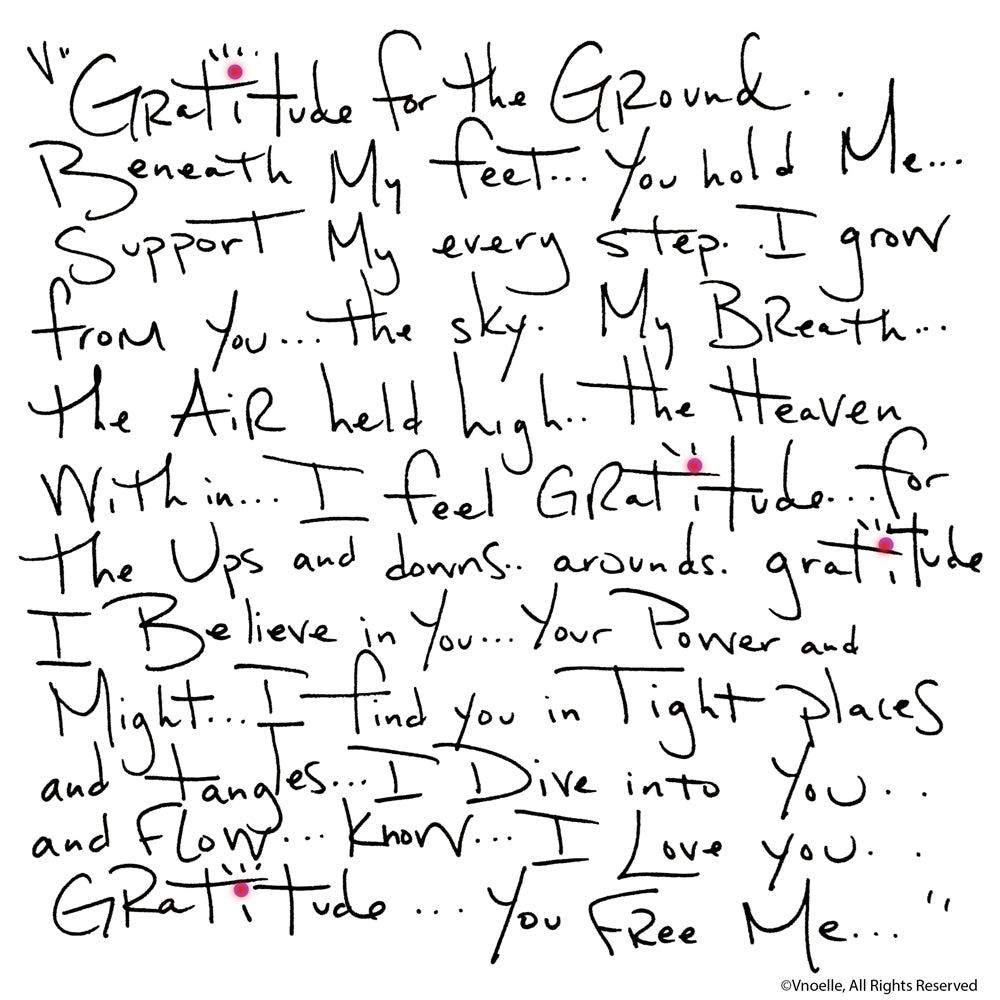 V" "Gratitude for the Ground..
Beneath My feet... You hold Me...
Support My every step. .I grow
from You... the sky. My Breath...
the AiR held high.. the Heaven
Within.... I feel GRatitude...for
the Ups and downs.. arounds. gratitude
I Believe in You... Your Power and
Might... I find you in Tight places
and tangles... I Dive into You..
and flow... know... I Love you..
GRatitude .... You FRee Me..."
©Vnoelle, All Rights Reserved